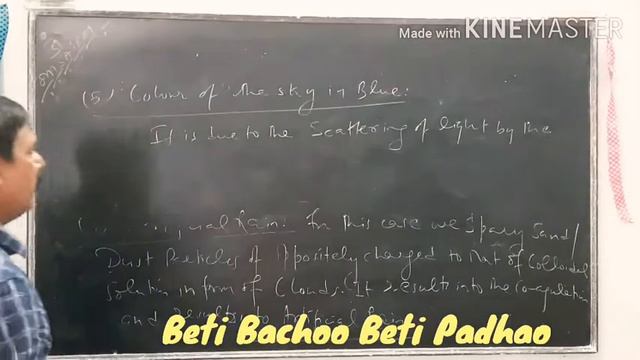 Made with KINEMASTER
(5) Colour of the sky in Blue:
It is due to the Scattering of light by the
Rain: In this case we spary Sand/
Dust Particles of oppositely charged to that of Colloidal
Solution in form of Clouds. It results into the coagulation
and results to Artificial Rain
Beti Bachoo Beti Padhao